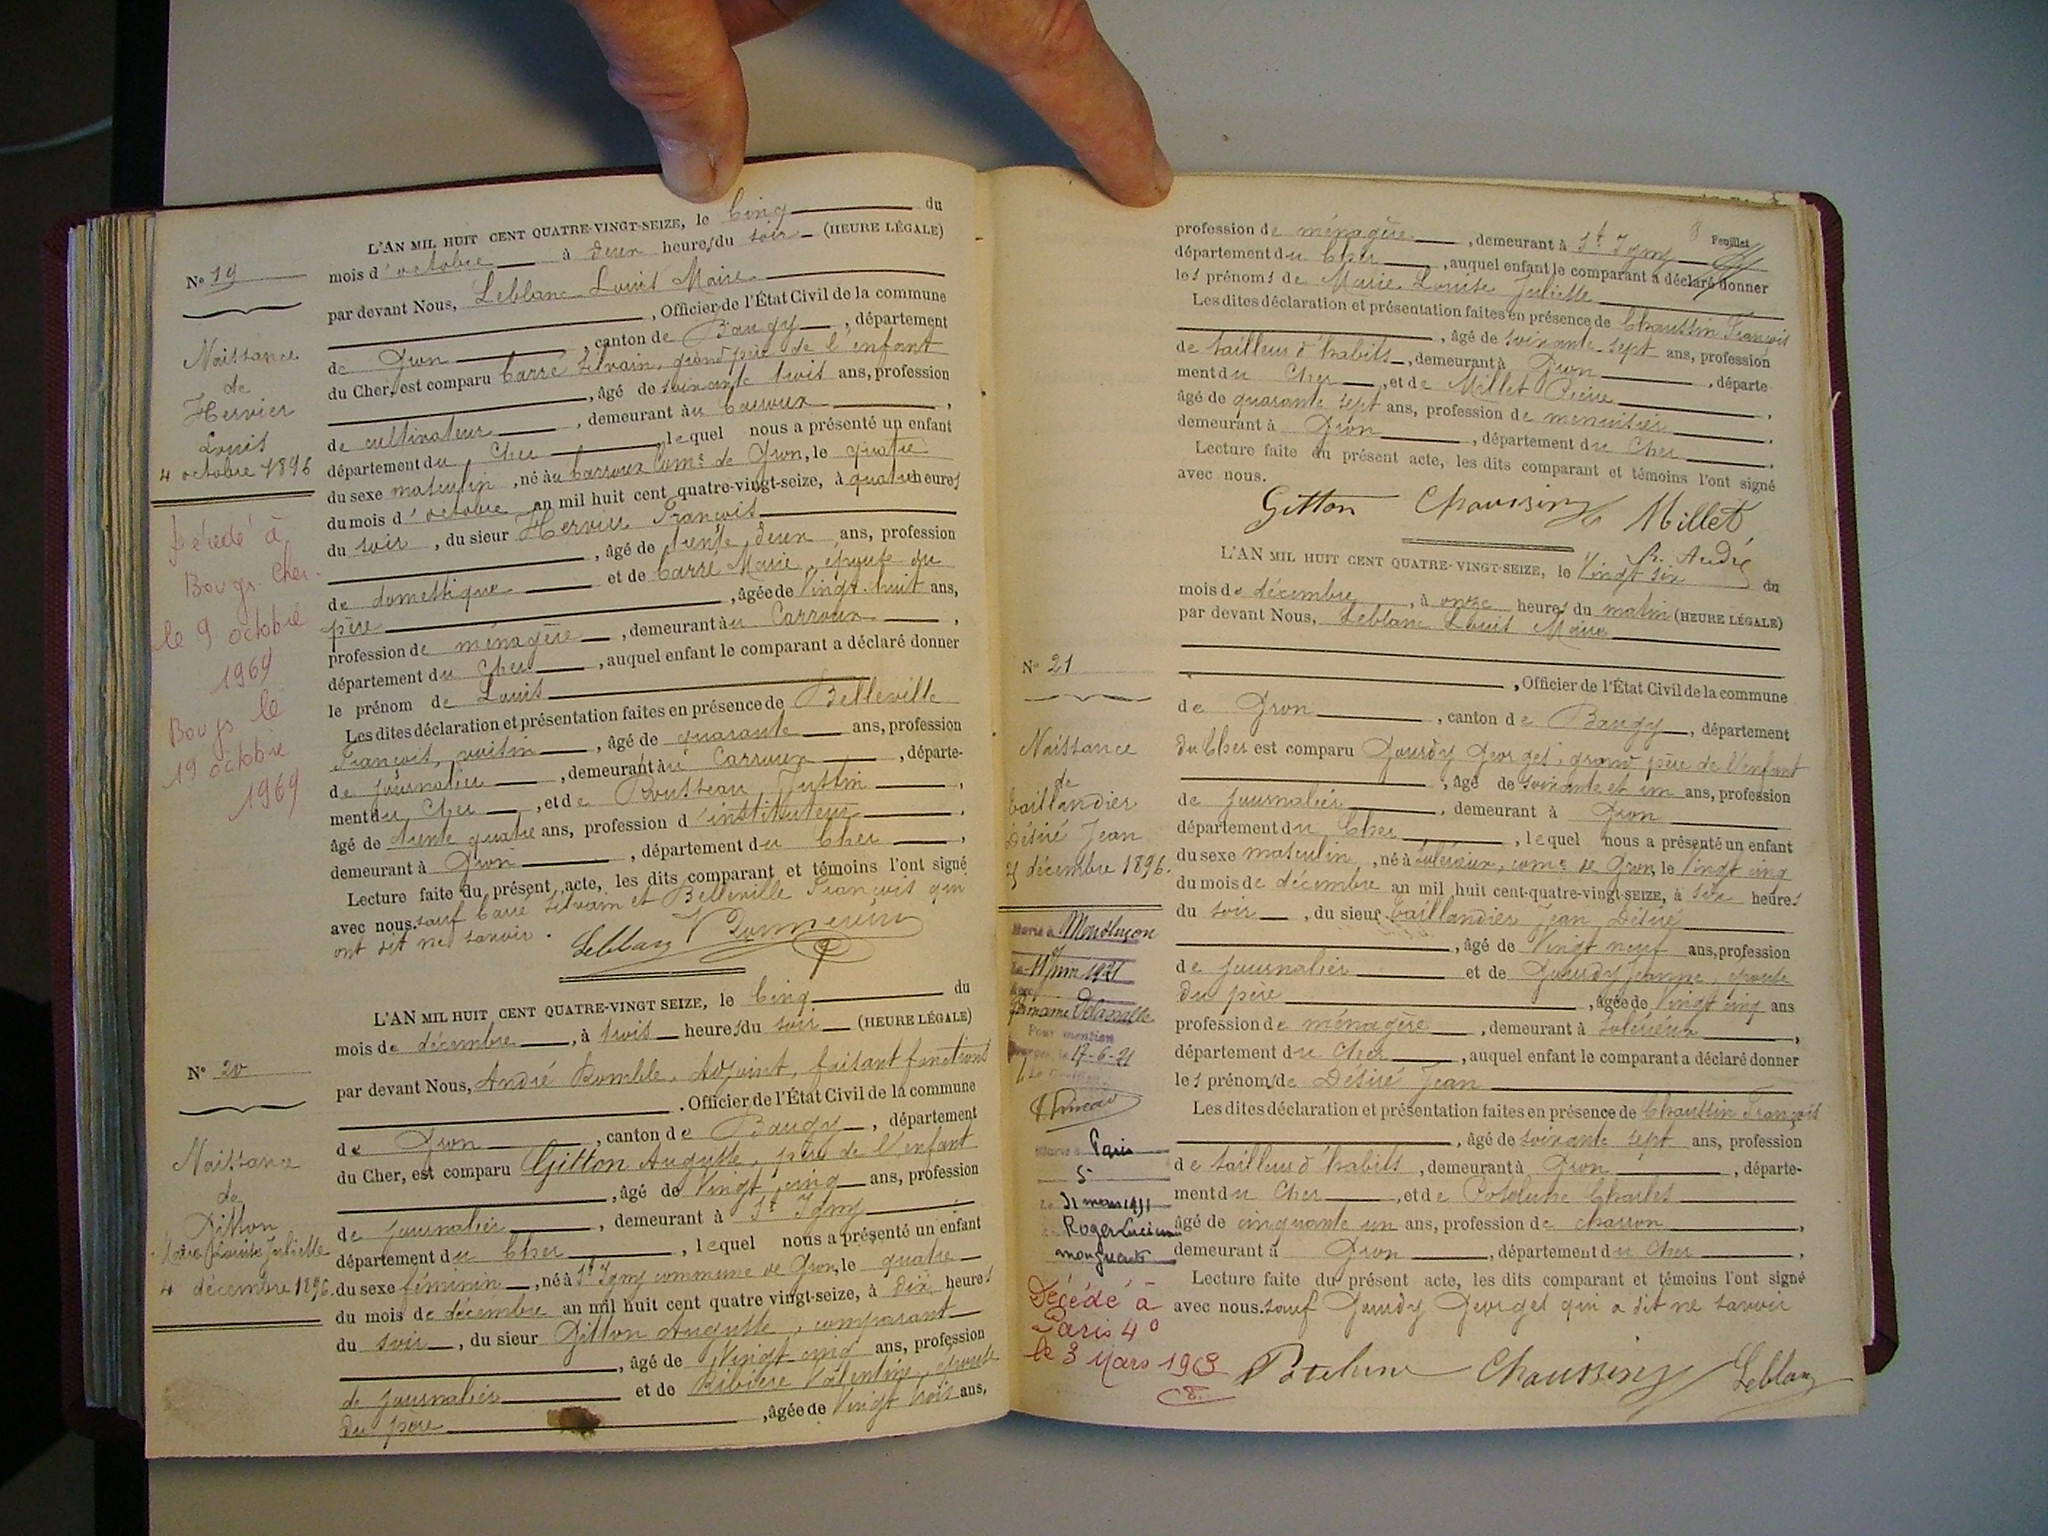 L'AN MIL HUIT CENT QUATRE-VINGT-SEIZE, le Cinq du
mois d'octobre à deux heures du soir (HEURE LÉGALE)
par devant Nous, Leblanc Louis Maire
, Officier de l'État Civil de la commune
de Gron , canton de Baugy , département
du Cher, est comparu Carré Silvain, grand père de l'enfant
, âgé de soixante trois ans, profession
de cultivateur , demeurant au Carroux ,
département du Cher , lequel nous a présenté un enfant
du sexe masculin , né au Carroux Come de Gron, le quatre
du mois d'octobre an mil huit cent quatre-vingt-seize, à quatre heures
du soir , du sieur Hervier François
, âgé de trente deux ans, profession
de domestique et de Carré Marie, épouse du
père , âgée de Vingt huit ans,
profession de ménagère , demeurant au Carroux ,
département du Cher , auquel enfant le comparant a déclaré donner
le prénom de Louis
Les dites déclaration et présentation faites en présence de Belleville
François, voisin , âgé de quarante ans, profession
de journalier , demeurant au Carroux , départe-
ment du Cher , et de Rousseau Justin ,
âgé de trente quatre ans, profession d'instituteur ,
demeurant à Gron , département du Cher ,
Lecture faite du présent acte, les dits comparant et témoins l'ont signé
avec nous. sauf Carré Silvain et Belleville François qui
ont dit ne savoir.
Leblanc
No 19
Naissance
de
Hervier
Louis
4 octobre 1896
Décédé à
Bourges Cher
le 9 octobre
1969
Bourges le
19 octobre
1969
L'AN MIL HUIT CENT QUATRE-VINGT SEIZE, le Cinq du
mois de décembre , à trois heures du soir (HEURE LÉGALE)
par devant Nous, André Romble, Adjoint, faisant fonctions
. Officier de l'État Civil de la commune
de Gron , canton de Baugy , département
du Cher, est comparu Gitton Auguste, père de l'enfant
, âgé de Vingt cinq ans, profession
de journalier , demeurant à St Igny
département du Cher , lequel nous a présenté un enfant
du sexe féminin , né à St Igny commune de Gron, le quatre
du mois de décembre an mil huit cent quatre vingt-seize, à dix heures
du soir , du sieur Gitton Auguste, comparant
, âgé de Vingt cinq ans, profession
de journalier et de Ribière Valentine, épouse
du père , âgée de Vingt trois ans,
No 20
Naissance
de
Gitton
Marie Louise Juliette
4 décembre 1896.
Feuillet
8
profession de ménagère , demeurant à St Igny
département du Cher , auquel enfant le comparant a déclaré donner
les prénoms de Marie Louise Juliette
Les dites déclaration et présentation faites en présence de Chaussin François
, âgé de soixante sept ans, profession
de tailleur d'habits , demeurant à Gron , départe-
ment du Cher , et de Millet Pierre ,
âgé de quarante sept ans, profession de menuisier ,
demeurant à Gron , département du Cher .
Lecture faite du présent acte, les dits comparant et témoins l'ont signé
avec nous.
Gitton Chaussin Millet
R. André
L'AN MIL HUIT CENT QUATRE-VINGT-SEIZE, le Vingt six du
mois de décembre , à onze heures du matin (HEURE LÉGALE)
par devant Nous, Leblanc Louis Maire
, Officier de l'État Civil de la commune
de Gron , canton de Baugy , département
du Cher est comparu Gourdy Georges, grand père de l'enfant
, âgé de soixante et un ans, profession
de journalier , demeurant à Gron
département du Cher , lequel nous a présenté un enfant
du sexe masculin , né à Solérieux, come de Gron, le Vingt cinq
du mois de décembre an mil huit cent-quatre-vingt-SEIZE, à six heures
du soir , du sieur Taillandier Jean Désiré
, âgé de Vingt neuf ans, profession
de journalier et de Gourdy Jeanne, épouse
du père , âgée de Vingt cinq ans
profession de ménagère , demeurant à Solérieux ,
département du Cher , auquel enfant le comparant a déclaré donner
les prénoms de Désiré Jean
Les dites déclaration et présentation faites en présence de Chaussin François
, âgé de soixante sept ans, profession
de tailleur d'habits , demeurant à Gron , départe-
ment du Cher , et de Potelune Charles
âgé de cinquante un ans, profession de charron ,
demeurant à Gron , département du Cher ,
Lecture faite du présent acte, les dits comparant et témoins l'ont signé
avec nous. sauf Gourdy Georges qui a dit ne savoir
Potelune Chaussin Leblanc
No 21
Naissance
de
Taillandier
Désiré Jean
25 décembre 1896.
Marié à Montluçon
Le 11 Juin 1921
avec
Germaine
Pour mention
le 17-6-21
Marié à Paris
5
Le 31 mars
Roger Lucienne
Marguerite
Décédé à
Paris 4o
le 3 Mars 1963